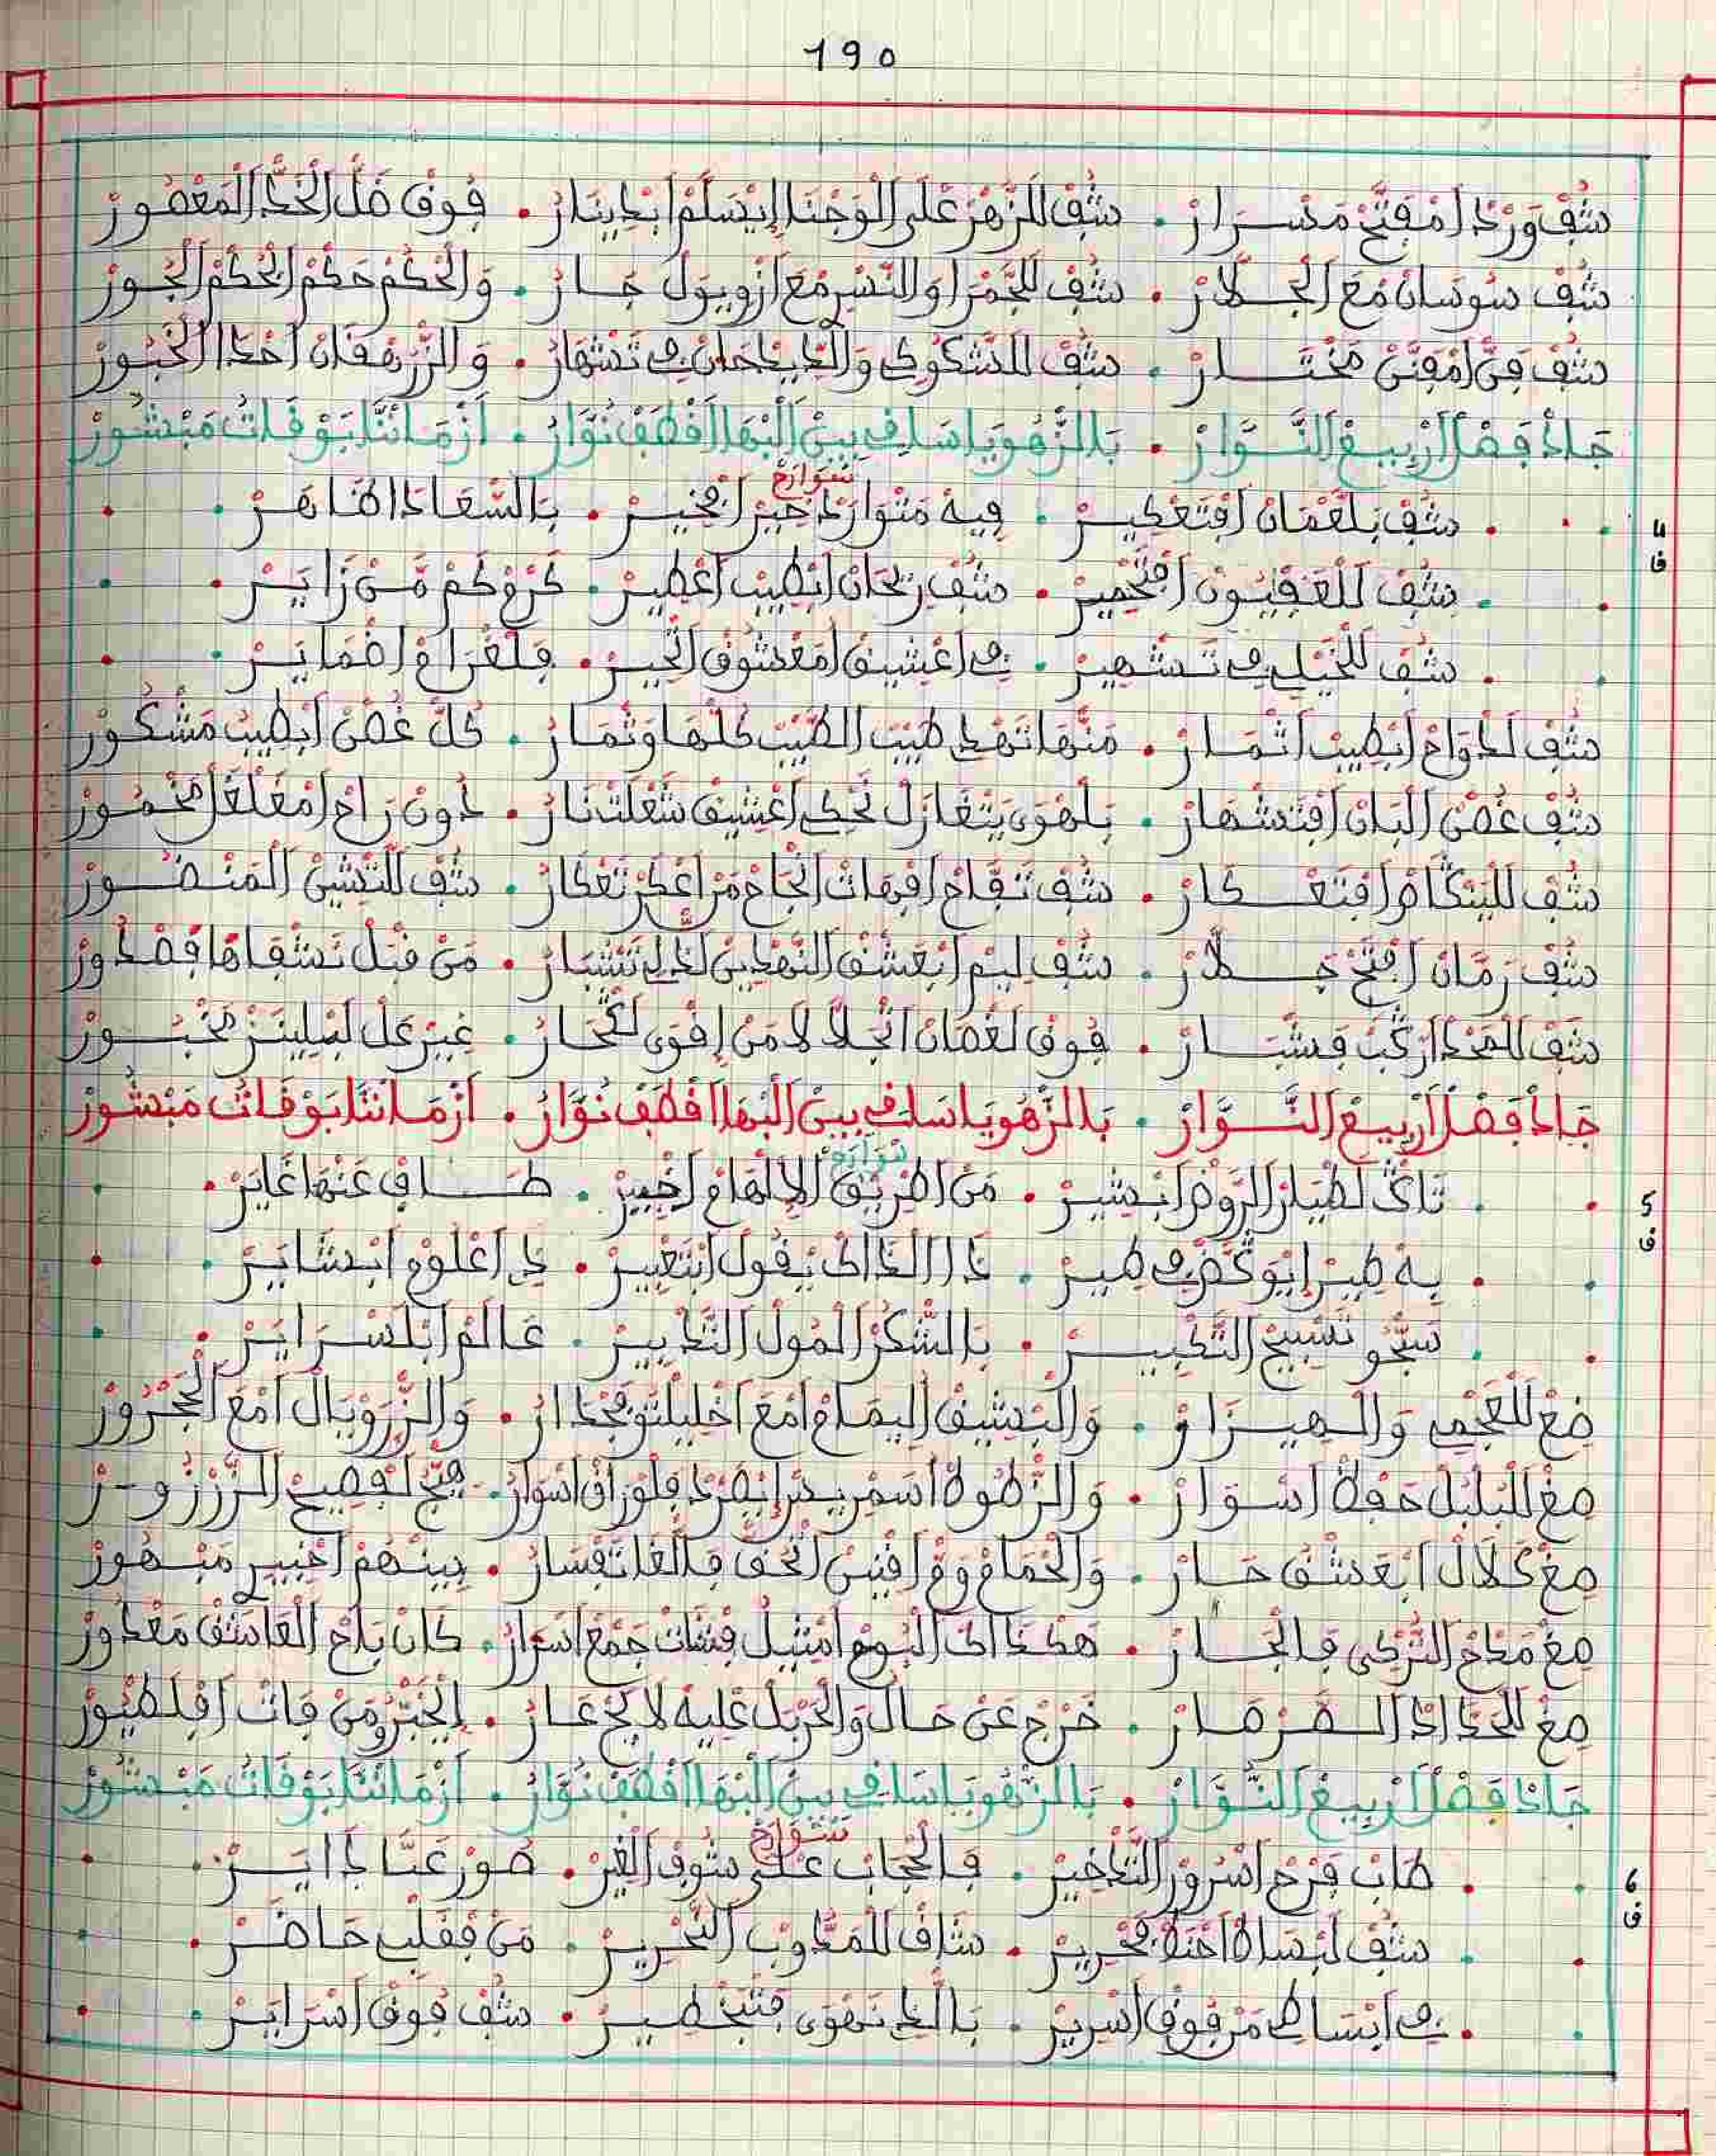 190
شُفْ وَرْدْ اَمْفَتَّحْ مَسْرَارْ . شُفْ الزْهَرْ عْلَى الْوَجْنَا اِيْسَلَّمْ اَبْدِينَارْ . فُوقْ خَلّْ الْخَدّْ الْمَعْصُورْ
شُفْ سُوسَانْ مْعَ الْجُلَّارْ . شُفْ الْجَمْرَا وَالنَّسْرِ مْعَ ازْوِيوَلْ جَارْ . وَالْحُكْمْ حَكْمْ الْحُكْمْ الْجُورْ
شُفْ فَنّْ اَمْفَنَّنْ مَخْتَارْ . شُفْ الشَّكُوكِي وَالدِّيدْحَانْ فِي تَشْهَارْ . وَالزَّهْفَانْ اَحْدَا الْخَبُّورْ
جَادْ فَصْلْ اَرْبِيعْ النُّوَّارْ . بَالزّْهُو يَا سَاقِي بِينْ الْبْهَا اَقْطَفْ نُوَّارْ . اَزْمَانْنَا بَوْقَاتُ مَبْشُورْ
سُوَارَحْ
4
ف
شُفْ بَلْعْمَانْ اَفْتَعْكِيرْ . فِيهْ مَتْوَارَدْ خِيرْ اَبْخِيرْ . بَالسّْعَادَا ظَاهَرْ
شُفْ الْعَفْيُونْ اَفْتَخْمِيرْ . شُفْ رِيحَانْ اَبْطِيبْ اَعْطِيرْ . كَرّْمْ كَمْ مَنْ زَايَرْ
شُفْ الْخَيْلِي فِي تَشْهِيرْ . فِي اَعْشِيقْ اَمْعَشُوقْ اَتْحِيرْ . فَلْغْرَامْ اَضْمَايَرْ
شُفْ لَدْوَاحْ اَبْطِيبْ اَثْمَارْ . مَنْهَا تَهْدِي طِيبْ الطِّيبْ كُلّْهَا وَثْمَارْ . كُلّْ غُصْنْ اَبْطِيبْ مَشْكُورْ
شُفْ غُصْنْ الْبَانْ اَفْتَشْهَارْ . بَلْهْوَى يَتْغَازَلْ تَحْكِي اَعْشِيقْ شَعْلَتْ نَارْ . دُونْ رَاحْ اَمْغَلْغَلْ مَخْمُورْ
شُفْ الْبَنْكَامْ اَفْتَعْكَارْ . شُفْ تَفَّاحْ اَفْبَهَاتْ اَنْجَاحْ مَرّْ اَعْكَرْ تَعْكَارْ . شُفْ النَّشِينْ الْمَنْصُورْ
شُفْ رَمَّانْ اَفْتَحْ جَلَّارْ . شُفْ لِيمْ اَبْعَشْقْ النَّهْدِينْ لَدْلِي تَشْبَارْ . مَنْ قْبَلْ نَشْقَاهَا فَصْدُورْ
شُفْ الْمَخْدْ اَرْكَبْ فَشْبَارْ . فُوقْ لَغْصَانْ اَتْجَلَّا لَا مَنْ اِقْوَى لَكْحَارْ . غِيرْ عَلْ لَبْلِينْزَرْ مَخْبُورْ
جَادْ فَصْلْ اَرْبِيعْ النُّوَّارْ . بَالزّْهُو يَا سَاقِي بِينْ الْبْهَا اَقْطَفْ نُوَّارْ . اَزْمَانْنَا بَوْقَاتُ مَبْشُورْ
سُوَارَحْ
5
ف
تَاكْ لَطْيَارْ الرَّوْضْ اَبْشِيرْ . مَنْ اَطْرِيقْ الْاِلْهَامْ اَخْبِيرْ . طَافْ عَنْهَا غَايَرْ
بِهْ طِيرْ اِيْوَكَّضْ فِي طِيرْ . ذَا الْذَاكْ يْقُولْ اَبْتَعْبِيرْ . دِي اَعْلُومْ اَبْشَايَرْ
سَبّْحُو تَسْبِيحْ التَّكْبِيرْ . بَالشُّكْرْ الْمُولْ التَّدْبِيرْ . عَالَمْ اَبْلَسْرَايَرْ
صِغْ الْعَجْمِي وَالْهِيزَارْ . وَالْبَشِيقْ الْيَمَامْ اَمْعَ اَخْلِيلْتُو فَجْدَارْ . وَالزَّرْوِيَالْ اَمْعَ الْجَرْوُرْ
صِغْ الْبَلْبُلْ حَفْظْ اَسْوَارْ . وَالزَّطُوطْ اَسْمْرِيسْ اِيْصَرَّدْ فَلْوْرَاقْ اَسْوَارْ . هَيّْجْ لَفْصِيحْ الزَّرْزُورْ
صِغْ كْلَالْ اَبْعَشْقْ حَارْ . وَالْحْمَامْ وَمّْ اَفْنِينْ اَتْحَفْ فَالْغَا تَفْسَارْ . بِينْهُمْ اَخْبِيرِي مَبْهُورْ
صِغْ مَدَّاحْ التُّرْكِي فَالْجَارْ . هَكْذَاكْ الْبُومْ اَمْثِيلْ فِتْنَاتْ جَمْعْ اَسْرَارْ . كَانْ بَاحْ الْعَاشْقْ مَعْدُورْ
صِغْ الْحْدَادَا الصَّرْصَارْ . خَرْجْ عَنْ حَالُ وَالْحَرْبَلْ عْلِيهْ لَا يَخْ عَارْ . اِلْخَبَّرْ وَمَنْ فَاتْ اَفْلَطْيُورْ
جَادْ فَصْلْ اَرْبِيعْ النُّوَّارْ . بَالزّْهُو يَا سَاقِي بِينْ الْبْهَا اَقْطَفْ نُوَّارْ . اَزْمَانْنَا بَوْقَاتُ مَبْشُورْ
سُوَارَحْ
6
ف
طَابْ فَرْحْ اَسْرُورْ التَّدْخِيرْ . فَالْحْجَابْ عْلَى شُوفْ الْغِيرْ . صُورْ عَنَّا دَايَرْ
شُفْ لَبْسَاطْ اَحْضَا فَحْرِيرْ . شَافْ الْمَدُّوبْ التَّحْرِيرْ . مَنْ فْقَلْبِي حَاضَرْ
فِي اَبْسَاطِي مَرْفُوقْ اَسْرِيرْ . بَالَّدِي نَهْوَى فَتْبَخْطِيرْ . شُفْ فُوقْ اَسْرَايَرْ